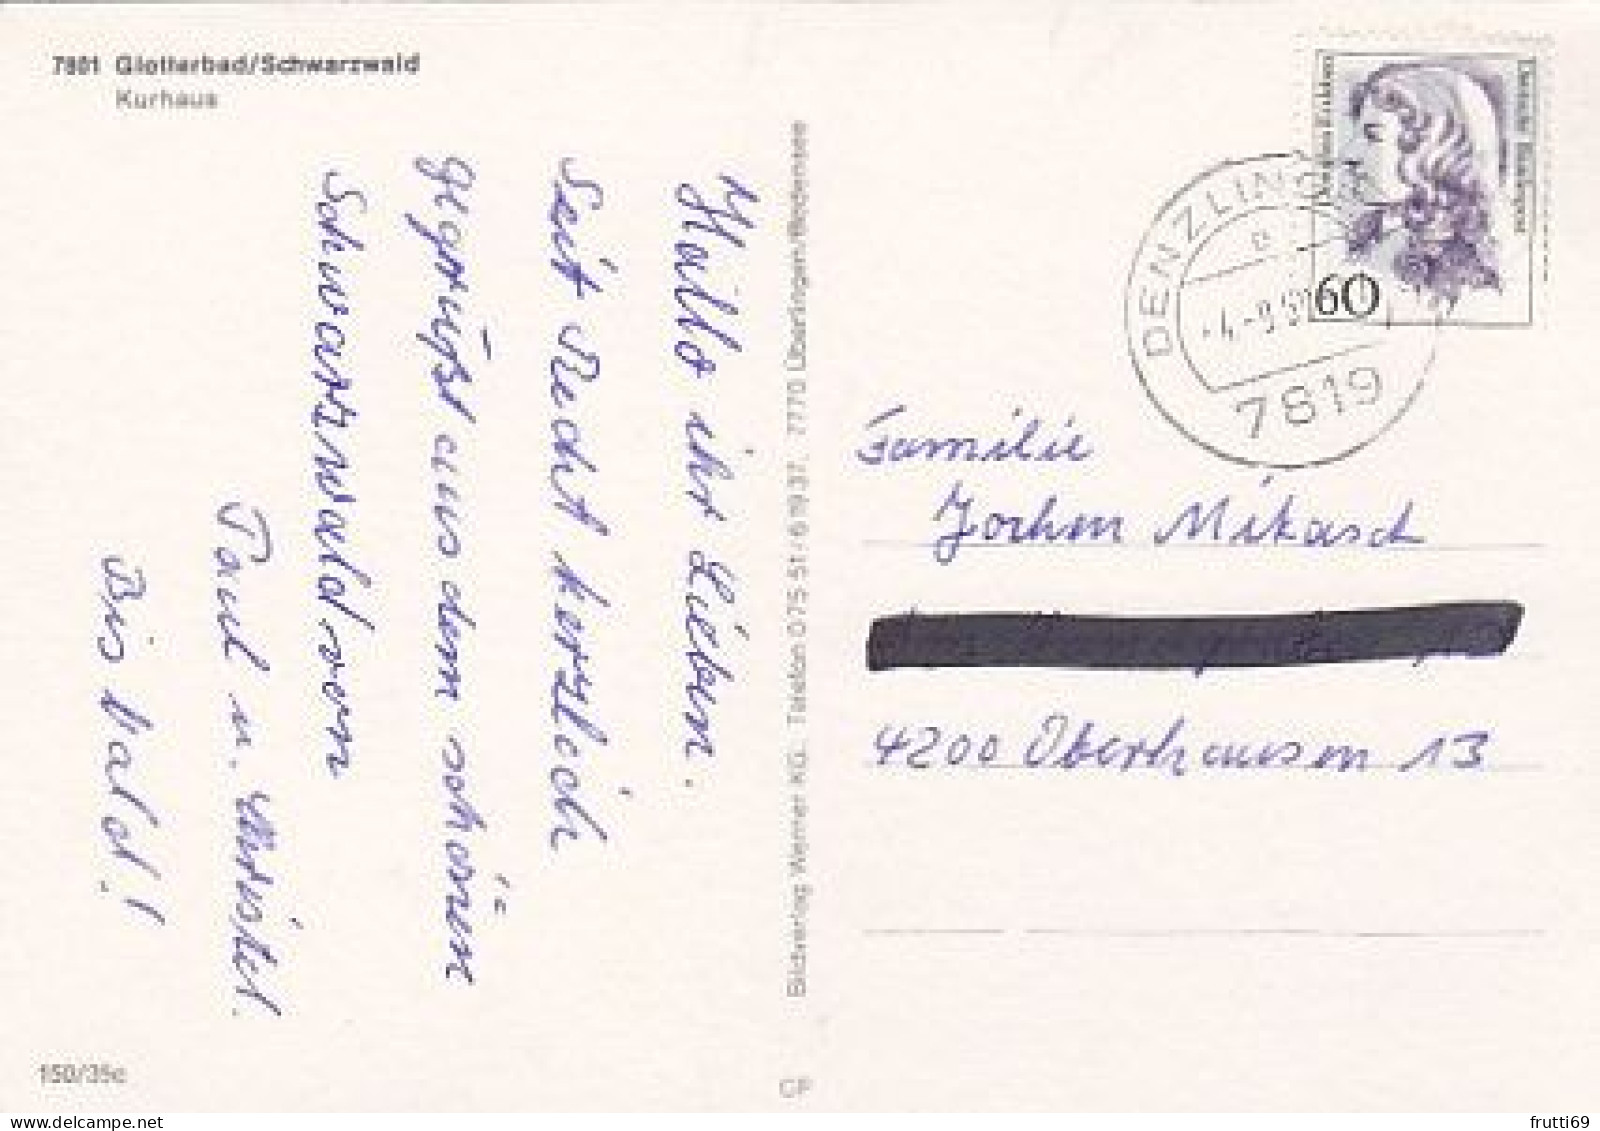 7801 Glotterbad/Schwarzwald
Kurhaus
Hallo ihr Lieben.
Seit Recht herzlich
gegrüßt aus dem schönen
Schwarzwald vom
Paul u.
Bis bald!
Bildverlag Werner KG. Telefon 0 75 51/6 19 37, 7770 Überlingen/Bodensee
Deutsche Bundespost
60
DENZLINGEN
-4.-9.9
7819
Familie
Jochen Mikasch
4200 Oberhausen 13
150/35c
CP
frutti69